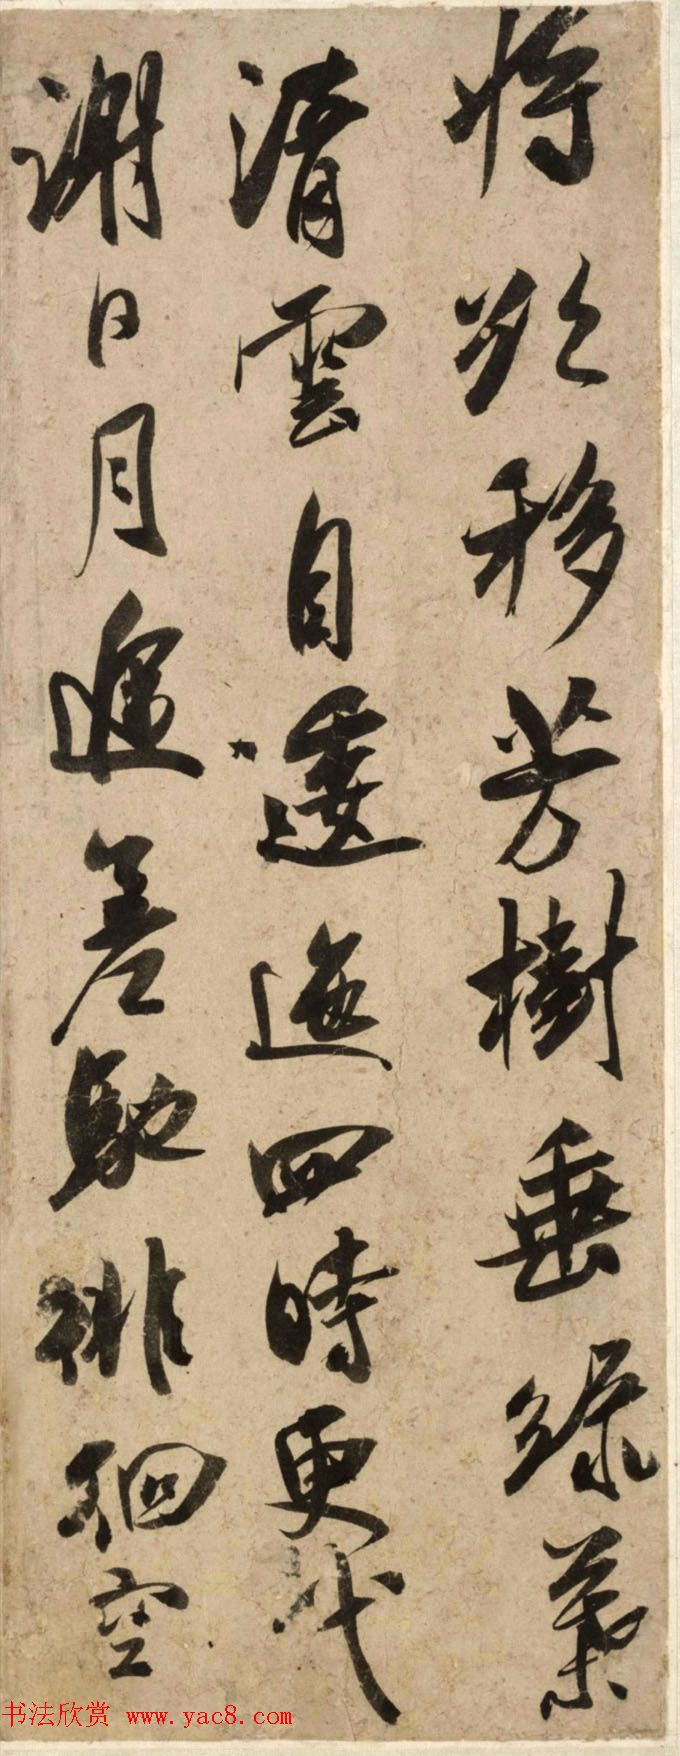 將欲移芳樹垂綠葉
清雲自逶迤四時更代
謝日月遞差馳徘徊空
书法欣赏 www.yac8.com